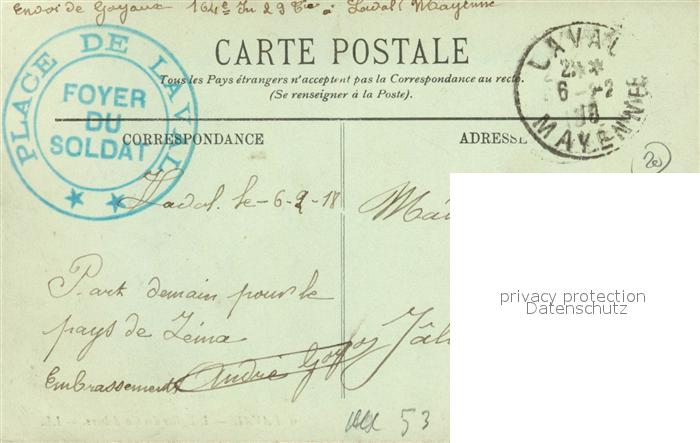 Envoi de Goyaux 164e In 29 Cie à Laval (Mayenne
CARTE POSTALE
Tous les Pays étrangers n'acceptent pas la Correspondance au recto.
(Se renseigner à la Poste).
PLACE DE LAVAL
FOYER
DU
SOLDAT
LAVAL
6-2
18
MAYENNE
CORRESPONDANCE
ADRESSE
20
Laval, le-6-2-18
Part demain pour le
pays de Zéma
Embrassements André
privacy protection
Datenschutz
53